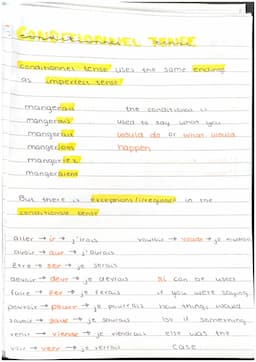 CONDITIONNEL TENSE
conditionnel tense uses the same ending
as imperfect tense
mangerais the conditional is
mangerais used to say what you
mangerait would do or what would
mangerions happen
mangeriez
mangeraient
But there is exceptions (irregular) in the
conditionnel tense
aller → ir → j'irais vouloir → voudr → je voudrais
avoir → aur → j'aurais
être → ser → je serais
devoir → devr → je devrais si can be used
faire → fer → je ferais if you were saying
pouvoir → pourr → je pourrais how things would
savoir → saur → je saurais be if something
venir → viendr → je viendrais else was the
voir → verr → je verrais case